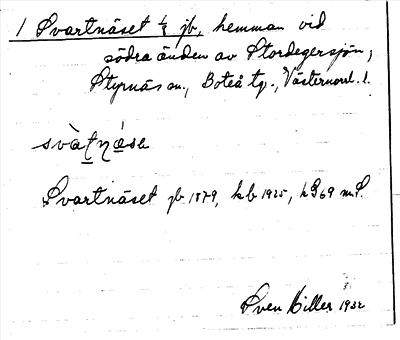 1 Svartnäset 1/8 jb, hemman vid
södra änden av Stordegersjön,
Styrnäs sn., Boteå tg., Västernorrl. l.
svàt̲ná̲sa
Svartnäset jb 1879, kb 1925, k G69 m.fl.
Sven Hiller 1932